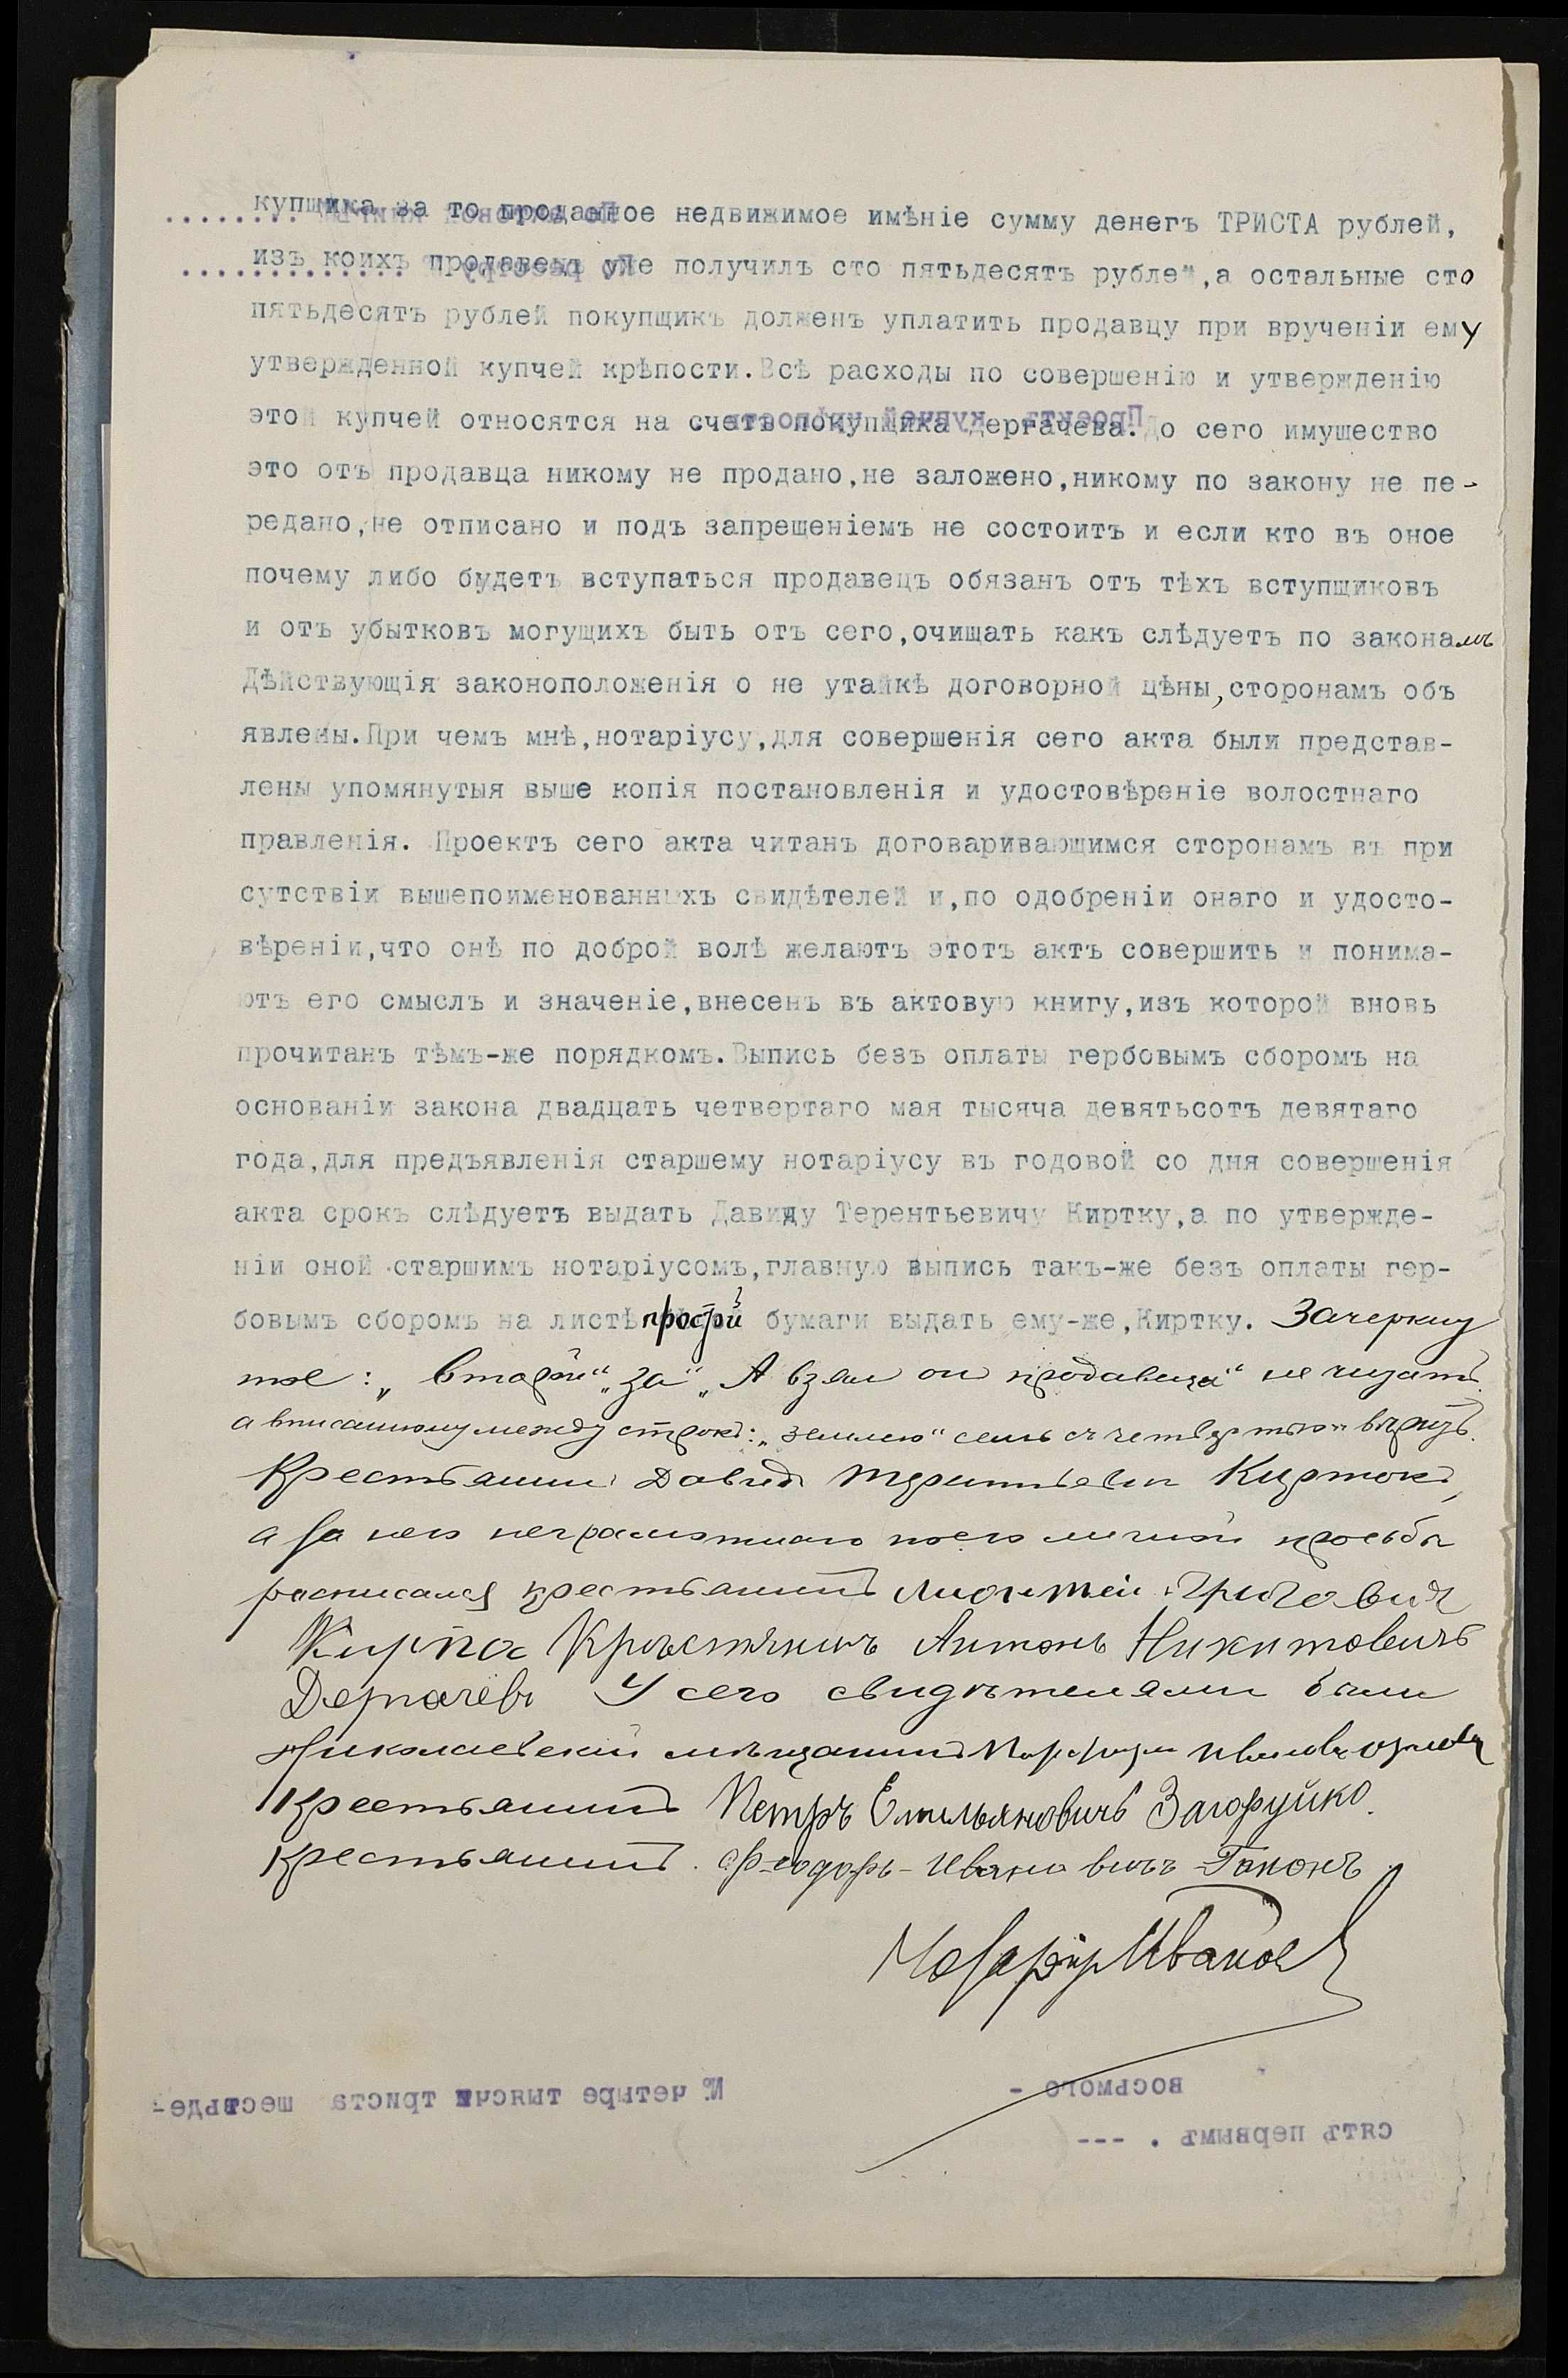 купщика за то проданное недвижимое имѣніе сумму денегъ ТРИСТА рублей,
изъ коихъ продавецъ уже получилъ сто пятьдесятъ рублей,а остальные сто
пятьдесятъ рублей покупщикъ долженъ уплатить продавцу при врученіи ему
утвержденной купчей крѣпости.Всѣ расходы по совершенію и утвержденію
этой купчей относятся на счетъ покупщика Дергачева.До сего имущество
это отъ продавца никому не продано,не заложено,никому по закону не пе-
редано,не отписано и подъ запрещеніемъ не состоитъ и если кто въ оное
почему либо будетъ вступаться продавецъ обязанъ отъ тѣхъ вступщиковъ
и отъ убытковъ могущихъ быть отъ сего,очищать какъ слѣдуетъ по законамъ
Дѣйствующія законоположенія о не утайкѣ договорной цѣны,сторонамъ объ
явлены.При чемъ мнѣ,нотаріусу,для совершенія сего акта были представ-
лены упомянутыя выше копія постановленія и удостовѣреніе волостнаго
правленія. Проектъ сего акта читанъ договаривающимся сторонамъ въ при
сутствіи вышепоименованныхъ свидѣтелей и,по одобреніи онаго и удосто-
вѣреніи,что онѣ по доброй волѣ желаютъ этотъ актъ совершить и понима-
ютъ его смыслъ и значеніе,внесенъ въ актовую книгу,изъ которой вновь
прочитанъ тѣмъ-же порядкомъ.Выпись безъ оплаты гербовымъ сборомъ на
основаніи закона двадцать четвертаго мая тысяча девятьсотъ девятаго
года,для предъявленія старшему нотаріусу въ годовой со дня совершенія
акта срокъ слѣдуетъ выдать Давиду Терентьевичу Киртку,а по утвержде-
ніи оной старшимъ нотаріусомъ,главную выпись такъ-же безъ оплаты гер-
бовымъ сборомъ на листѣ простой бумаги выдать ему-же,Киртку. Зачеркну
тое: „ „за" „А взял он продавца" не читать
а вписанному между строк: „землею" семь съ четвертью" вѣрить.
Крестьянин Давид Терентьевич Кирток,
а за него неграмотнаго по его личной просьбѣ
росписался крестьянинъ
Кирпа Кръстянинъ Антонъ Никитовичъ
Дергачевъ У сего свидѣтелями были
Николаевский мѣщанинъ
Крестьянинъ Петръ Емельяновичъ Загоруйко.
Крестьянинъ. Феодоръ Ивановичъ Гапонъ
Нотаріус Иванов
№ четыре тысячи триста шестьде-
восьмого -
сятъ первымъ . ---